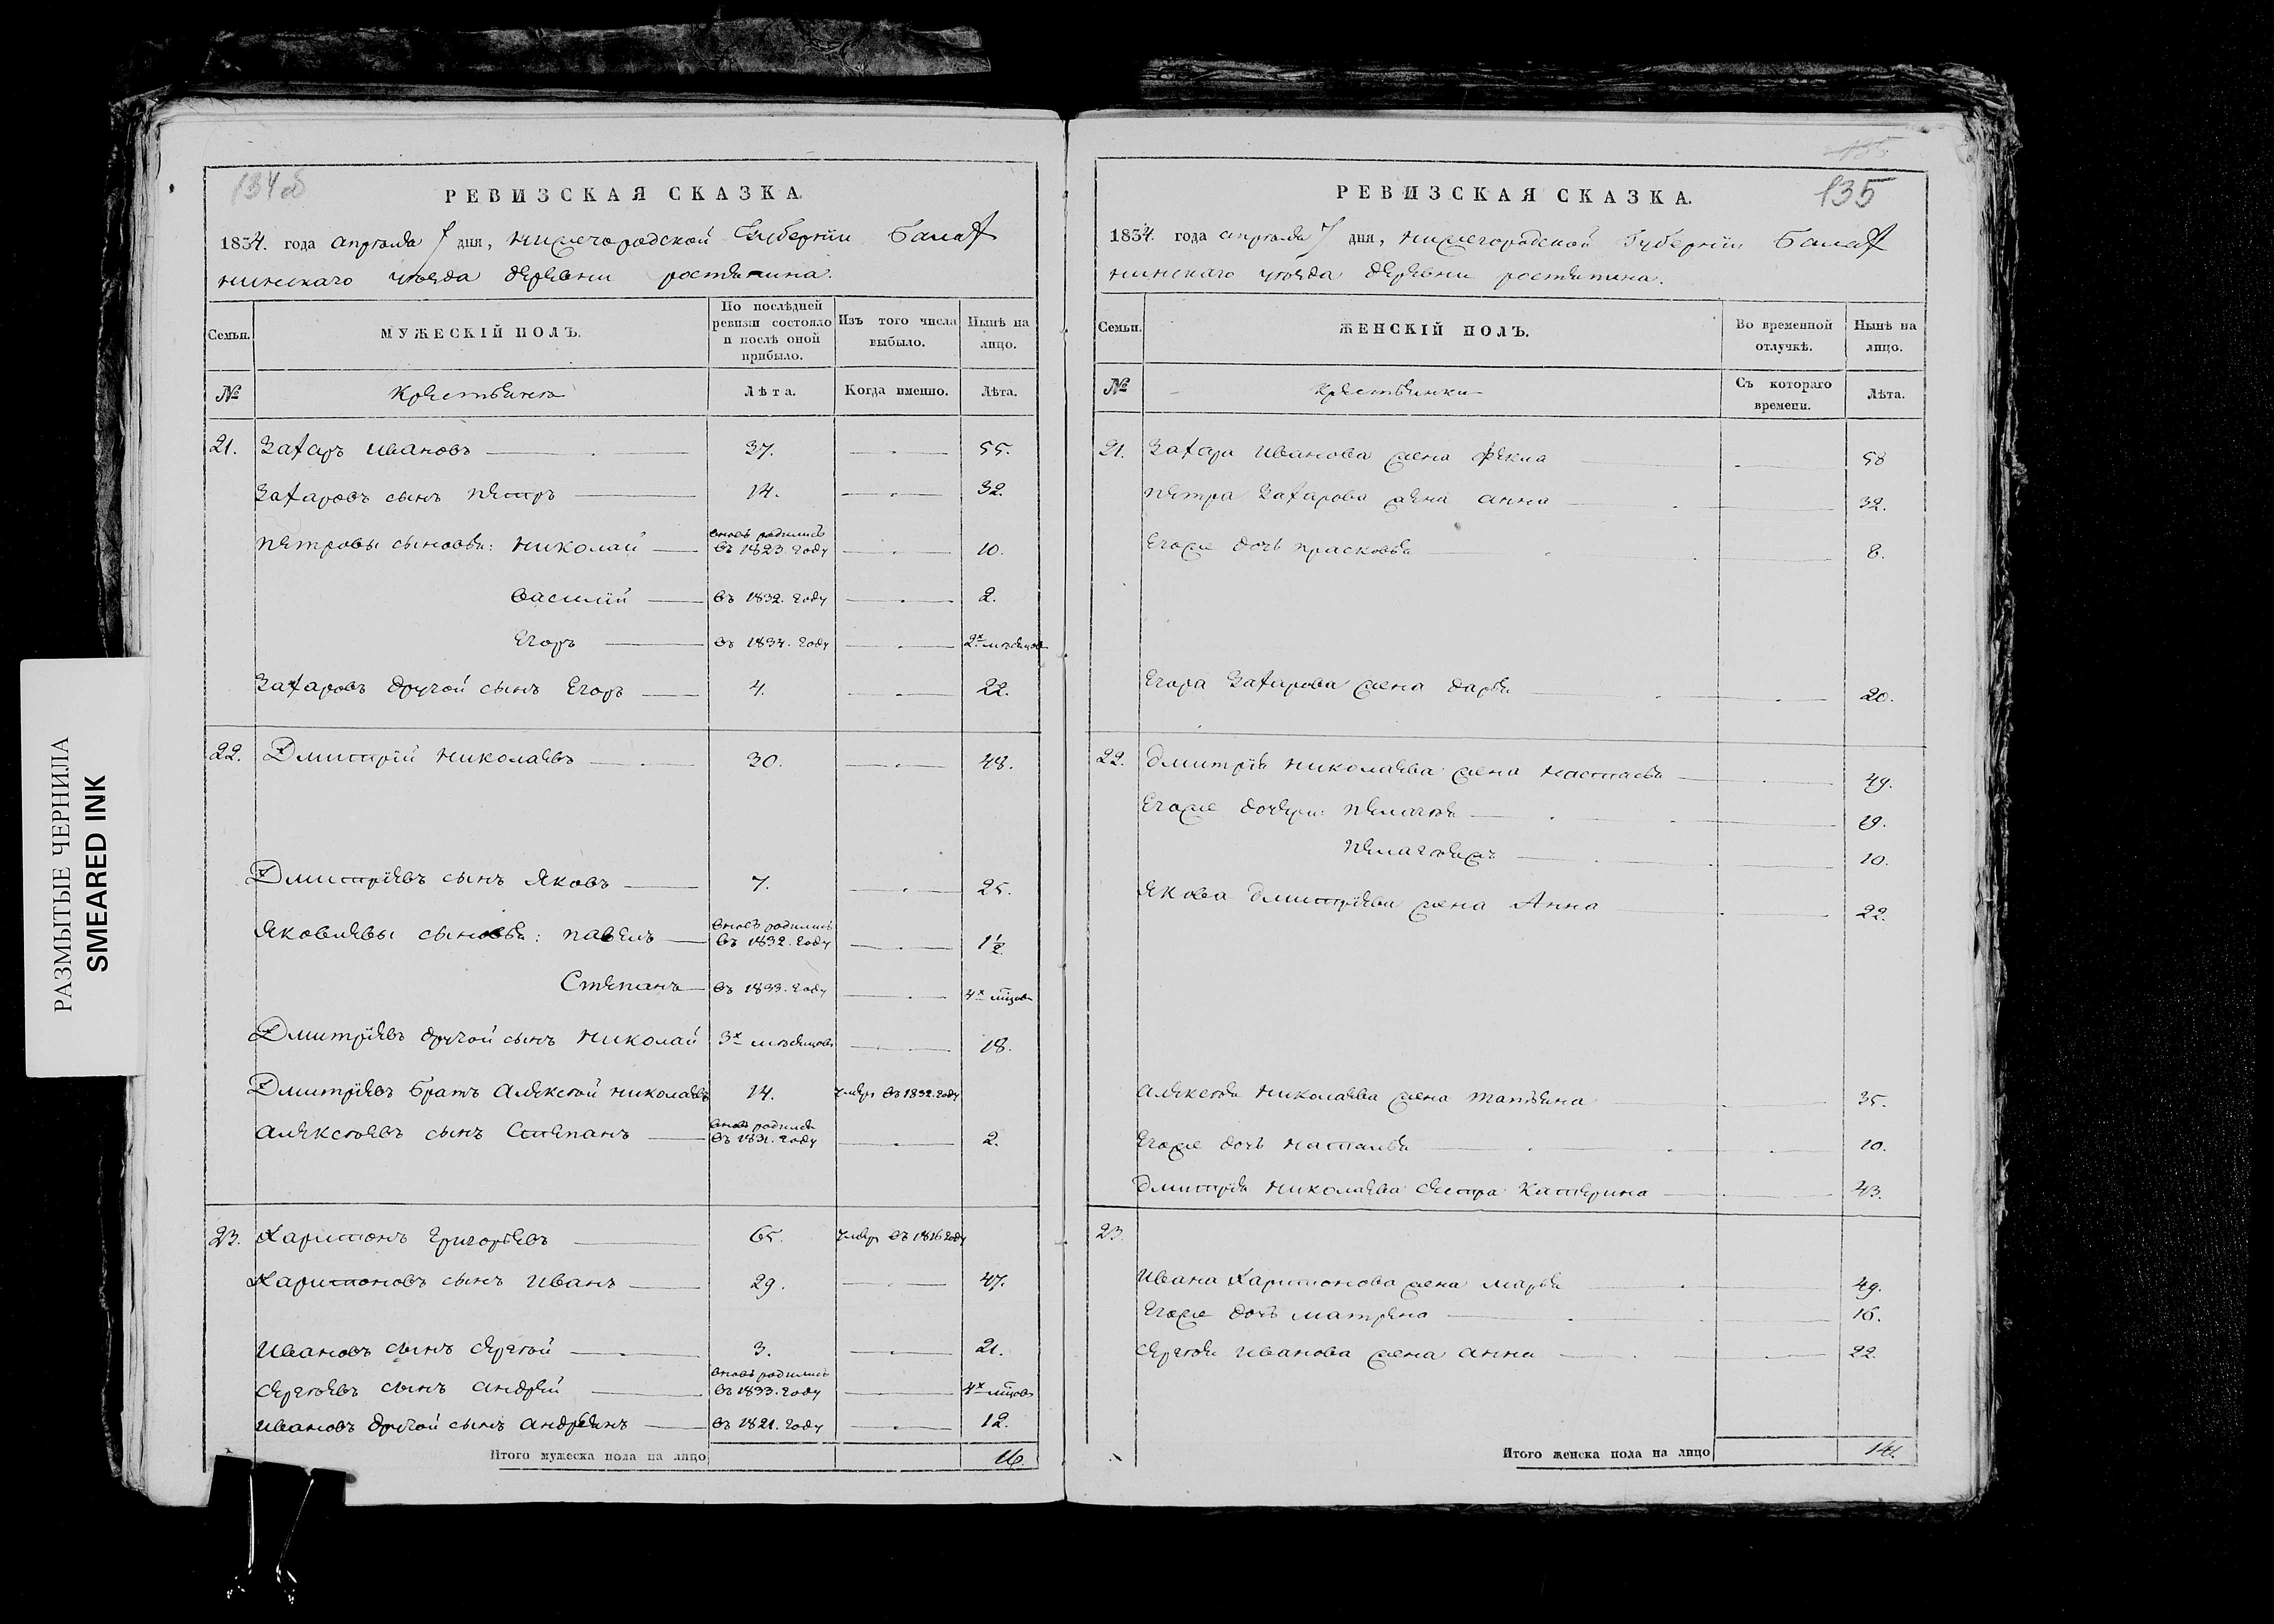 РАЗМЫТЫЕ ЧЕРНИЛА
SMEARED INK
134об
РЕВИЗСКАЯ СКАЗКА.
1834. года апреля 7 дня, нижегородской Губерніи Балах
нинскаго уѣзда деревни ростяпина.
Семьи. МУЖЕСКІЙ ПОЛЪ. По послѣдней ревизіи состояло и послѣ оной прибыло. Изъ того числа выбыло. Нынѣ на лицо.
№ Крестьяня Лѣта. Когда именно. Лѣта.
21. Захаръ Ивановъ 37. 55.
Захаровъ сынъ петръ 14. 32.
петровы сыновья: николай вновь родились въ 1823. году 10.
василій въ 1832. году 2.
Егоръ въ 1834. году 2х мѣсяцовъ
Захаровъ другой сынъ Егоръ 4. 22.
22. Дмитрій николаевъ 30. 48.
Дмитріевъ сынъ Яковъ 7. 25.
Яковлевы сыновья: павелъ вновь родились въ 1832. году 1½
Степанъ въ 1833. году 4х мцовъ
Дмитріевъ другой сынъ николай 3х мѣсяцовъ 18.
Дмитріевъ братъ алексѣй николаевъ 14. умеръ въ 1832. году
алексѣевъ сынъ Степанъ вновь родился въ году 2.
23. Харитонъ григорьевъ 65. умеръ въ 1816 году
Харитоновъ сынъ иванъ 29. 47.
ивановъ сынъ сергѣй 3. 21.
сергѣевъ сынъ андрей вновь родились въ 1833. году 4х мцовъ
ивановъ другой сынъ андреянъ въ 1821. году 12.
Итого мужеска пола на лицо 16.
135
РЕВИЗСКАЯ СКАЗКА.
1834. года апреля 7 дня, нижегородской Губерніи Балах
нинскаго уѣзда деревни ростяпина.
Семьи. ЖЕНСКІЙ ПОЛЪ. Во временной отлучкѣ. Нынѣ на лицо.
№ Крестьянки Съ котораго времени. Лѣта.
21. Захара Иванова жена фекла 58
петра Захарова жена анна 32.
Егоже дочь прасковья 8.
Егора Захарова жена дарья 20.
22. Дмитрія николаева жена настасья 49.
Егоже дочери: пелагѣя 19.
10.
Якова Дмитріева жена Анна 22.
алексѣя николаева жена татьяна 35.
Егоже дочь наталья 10.
Дмитрія николаева сестра Катерина 43.
23.
ивана Харитонова жена марья 49.
Егоже дочь матрена 16.
сергѣя иванова жена анна 22.
Итого женска пола на лицо 14.